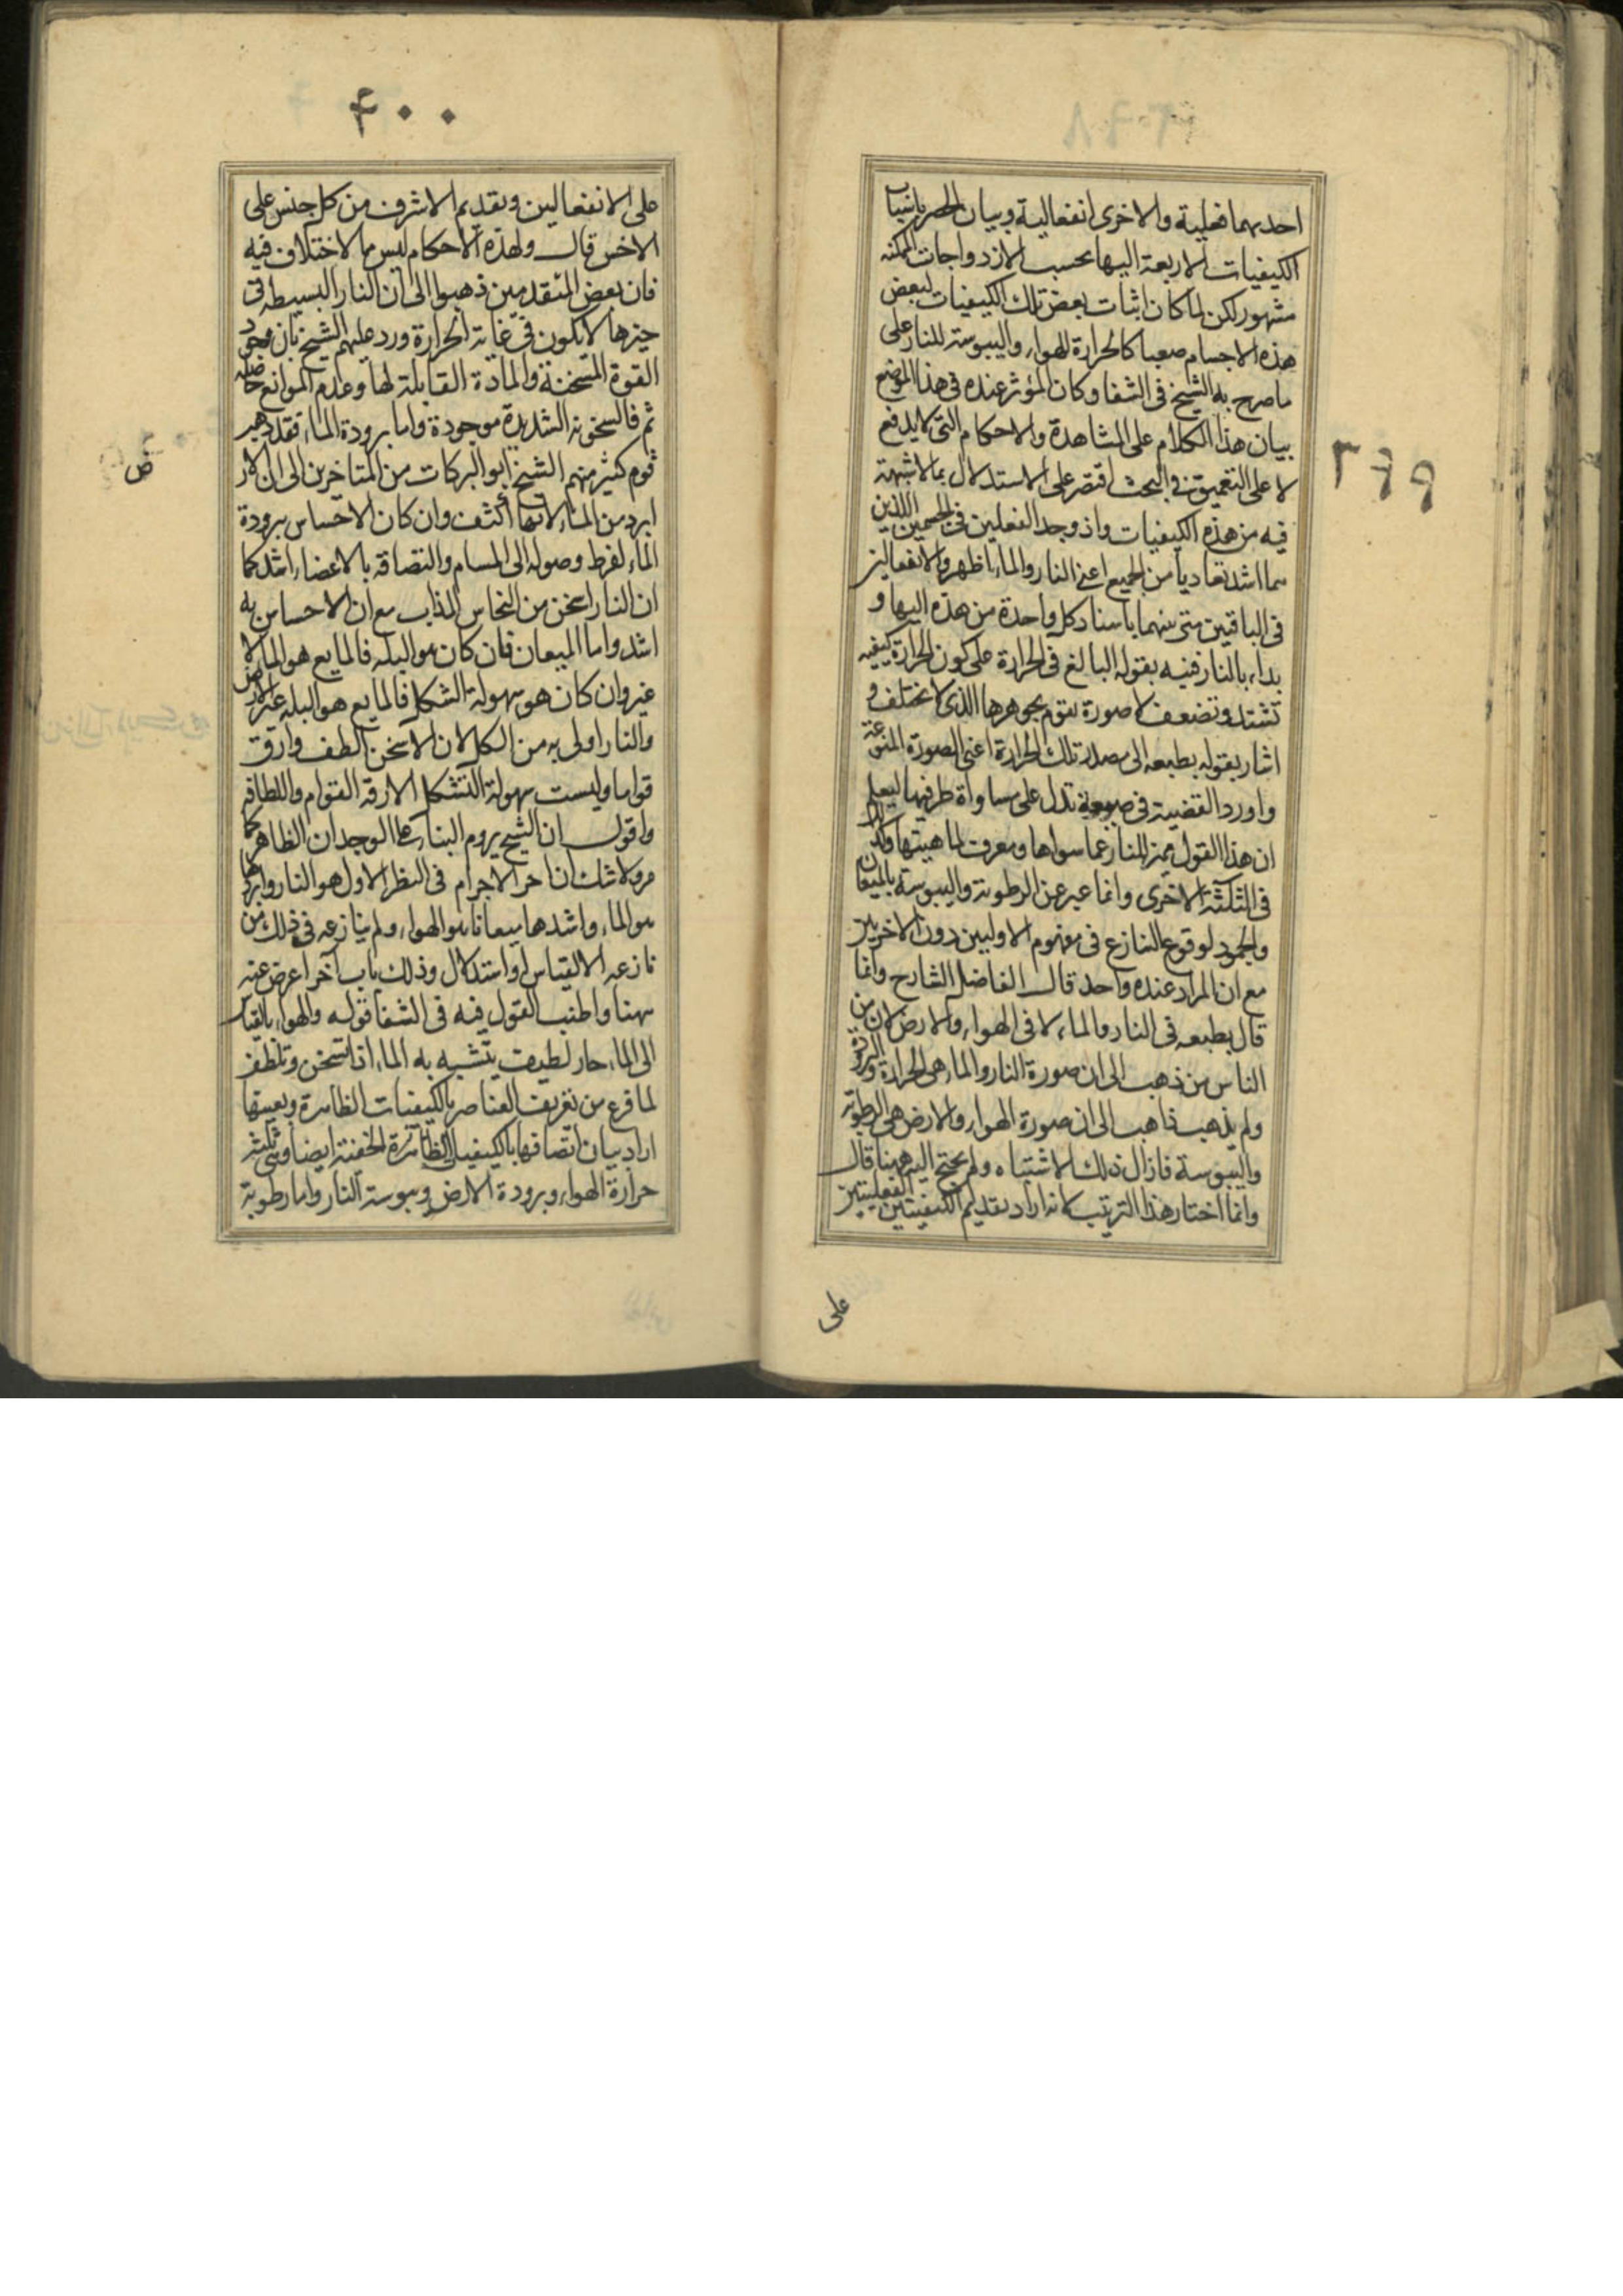 ٣٩٩
احديهما فعلية والاخرى انفعالية وبيان الحصر بانتساب
الكيفيات الاربعة اليها بحسب الازدواجات الممكنه
مشهور لكن لما كان اثبات بعض تلك الكيفيات لبعض
هذه الاجسام صعبا كالحرارة للهواء واليبوسة للنار على
ما صرح به الشيخ فى الشفا وكان المؤثر عنده فى هذا الموضع
بيان هذا الكلام على المشاهدة والاحكام التى لا يدفع
لا على التعميق فى البحث اقتصر على الاستدلال بما لا شبهة
فيه من هذه الكيفيات واذ وجد الفعلين فى الجسمين اللذين
هما اشد تعاديا من الجميع اعنى النار والماء اظهر والانفعالين
فى الباقيين متى بينهما باسناد كل واحدة من هذه اليها و
بداء بالنار فنبه بقوله البالغ فى الحرارة على كون الحرارة كيفيه
تشتد وتضعف لا صورة تقوم بجوهرها الذى لا يختلف و
اشار بقوله بطبعه الى مصدر تلك الحرارة اعنى الصورة المنوعة
واورد القضية فى صيغة تدل على مساواة طرفيها ليعلم
ان هذا القول مميز للنار عما سواها ومعرف لماهيتها وكذا
فى الثلثة الاخرى وانما عبر عن الرطوبة واليبوسة بالميعان
والجمود لوقوع التنازع فى مفهوم الاوليين دون الاخريين
مع ان المراد عنده واحد قال الفاضل الشارح وانما
قال بطبعه فى النار والماء لا فى الهواء والارض لان من
الناس من ذهب الى ان صورة النار والماء هى الحرارة والبرودة
ولم يذهب ذاهب الى ان صورة الهواء والارض هى الرطوبة
واليبوسة فازال ذلك الاشتباه ولم يحتج اليه ههنا قال
وانما اختار هذا الترتيب لانه اراد تقديم الكيفيتين الفعليتين
على
۴۰۰
على الانفعالين وتقديم الاشرف من كل جنس على
الاخس قال وهذه الاحكام ليس مما لا اختلاف فيه
فان بعض المتقدمين ذهبوا الى ان النار البسيطه فى
حيزها لا تكون فى غاية الحرارة ورد عليهم الشيخ بان وجود
القوة المسخنة والمادة القابلة لها وعدم الموانع حاصله
ثم فالسخونه الشديدة موجودة واما برودة الماء فقد ذهب
قوم كثير منهم الشيخ ابو البركات من المتاخرين الى ان الار
ض
ابرد من الماء لانها اكثف وان كان الاحساس ببرودة
الماء لفرط وصوله الى المسام والتصاقه بالاعضاء اشد كما
ان النار اسخن من النحاس المذاب مع ان الاحساس به
اشد واما الميعان فان كان هو البله فالمايع هو الماء لا
غير وان كان هو سهولة الشكل فالمايع هو البله غير الارض
والنار اولى به من الكل لان الاسخن الطف وارق
قواما وليست سهولة التشكل الا رقة القوام واللطافه
واقول ان الشيخ يروم البناء على الوجدان الظاهر كما
مر ولا شك ان احر الاجرام فى النظر الاول هو النار وابردها
هو الماء واشدها ميعانا هو الهواء ولم ينازعه فى ذلك من
نازعه الا لقياس او استدلال وذلك باب آخر اعرض عنه
ههنا واطنب القول فيه فى الشفا قوله والهواء بالقياس
الى الماء حار لطيف يتشبه به الماء اذا سخن وتلطف
لما فرغ من تعريف العناصر بالكيفيات الظاهرة وتعيينها
اراد بيان اتصافها بالكيفيات الظاهرة الخفية ايضا وهى ثلثة
حرارة الهواء وبرودة الارض ويبوسة النار واما رطوبة